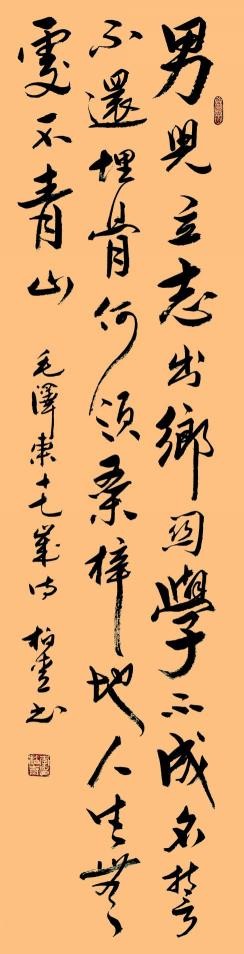 男兒立志出鄉關學不成名誓
不還埋骨何須桑梓地人生無
處不青山 毛澤東十七歲詩 柏书